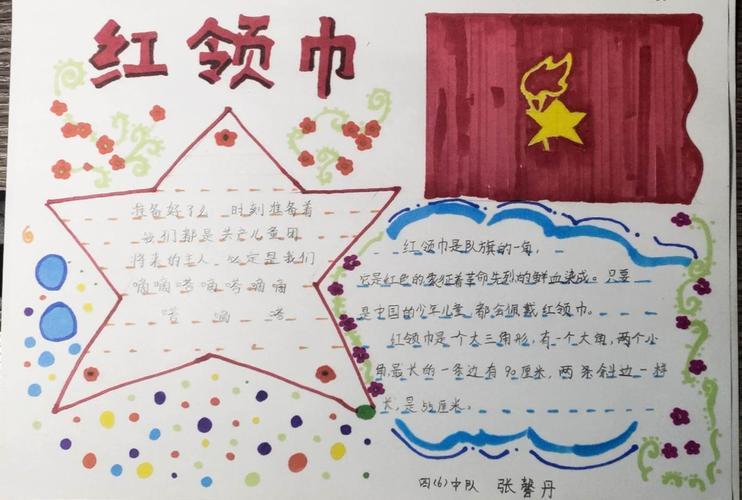 红领巾
准备好了么 时刻准备着
我们都是共产儿童团
将来的主人 必定是我们
嘀嘀嗒嘀嗒嘀嘀
嗒 嘀 嗒
红领巾是队旗的一角,
它是红色的象征着革命先烈的鲜血染成。只要
是中国的少年儿童 都会佩戴红领巾。
红领巾是一个大三角形,有一个大角,两个小
角最长的一条边有90厘米,两条斜边一样
长,是55厘米。
四(6)中队 张馨丹